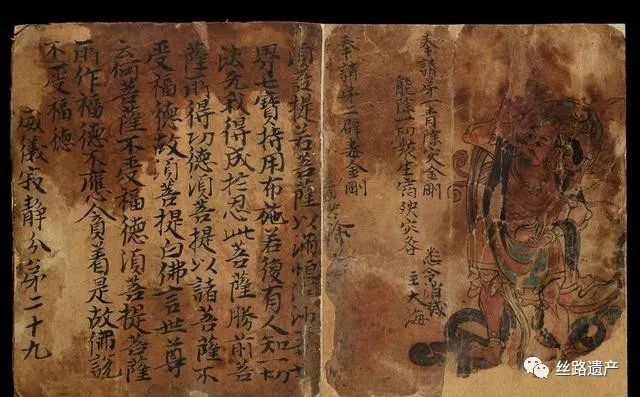 奉請第一青除灾金剛
能除一切衆生宿殃灾咎
悉令消滅
主大海
奉請第二辟毒金剛
除
須菩提若菩薩以滿恒河沙等
界七寶持用布施若後有人知一切
法无我得成於忍此菩薩勝前菩
薩所得功德須菩提以諸菩薩不
受福德故須菩提白佛言世尊
云何菩薩不受福德須菩提菩薩
所作福德不應貪着是故佛說
不受福德
威儀寂靜分第二十九
丝路遗产